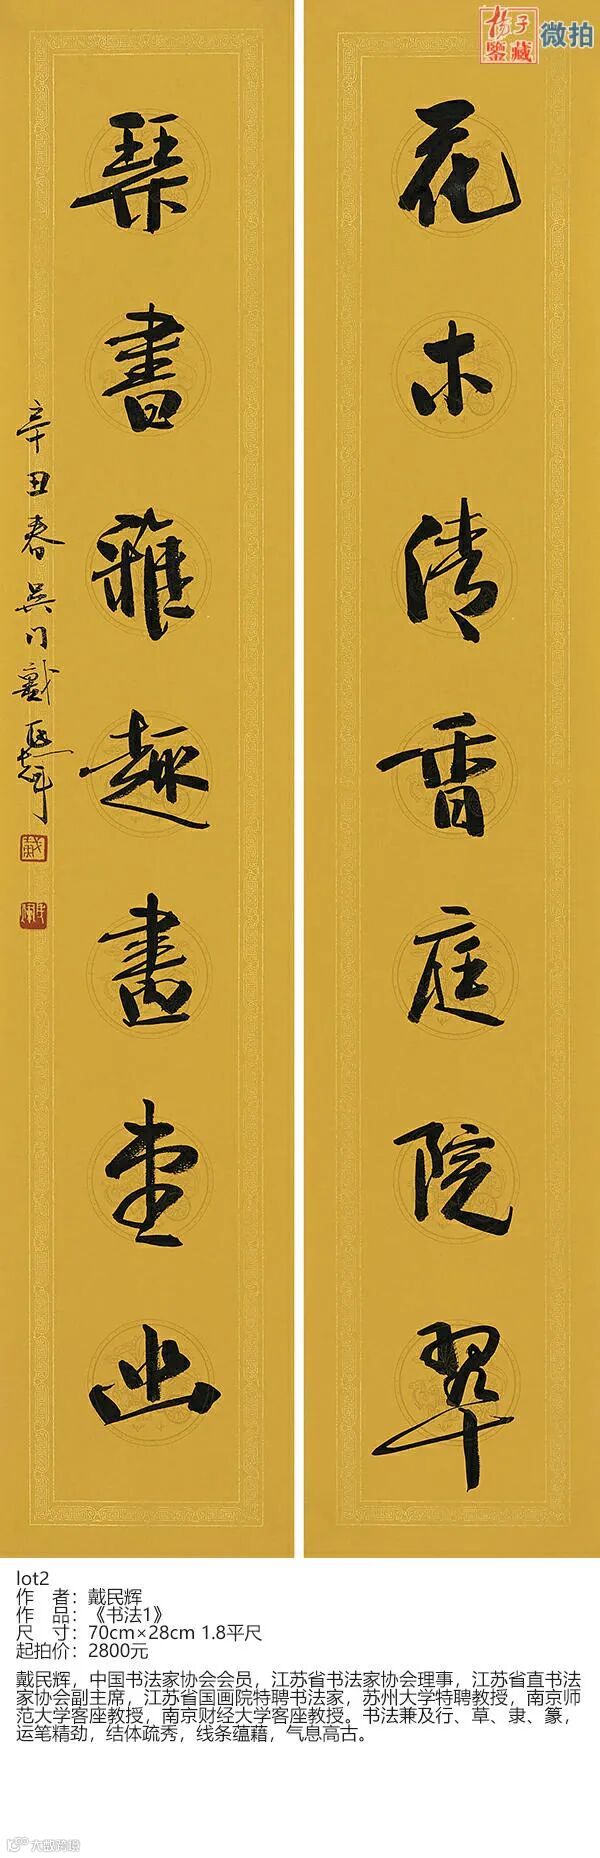 杨子
鉴藏
微拍
花木清香庭院翠
琴書雅趣畫堂幽
辛丑春吴门戴民辉
戴
lot2
作 者：戴民辉
作 品：《书法1》
尺 寸：70cm×28cm 1.8平尺
起拍价：2800元
戴民辉，中国书法家协会会员，江苏省书法家协会理事，江苏省直书法
家协会副主席，江苏省国画院特聘书法家，苏州大学特聘教授，南京师
范大学客座教授，南京财经大学客座教授。书法兼及行、草、隶、篆，
运笔精劲，结体疏秀，线条蕴藉，气息高古。
大数跨境